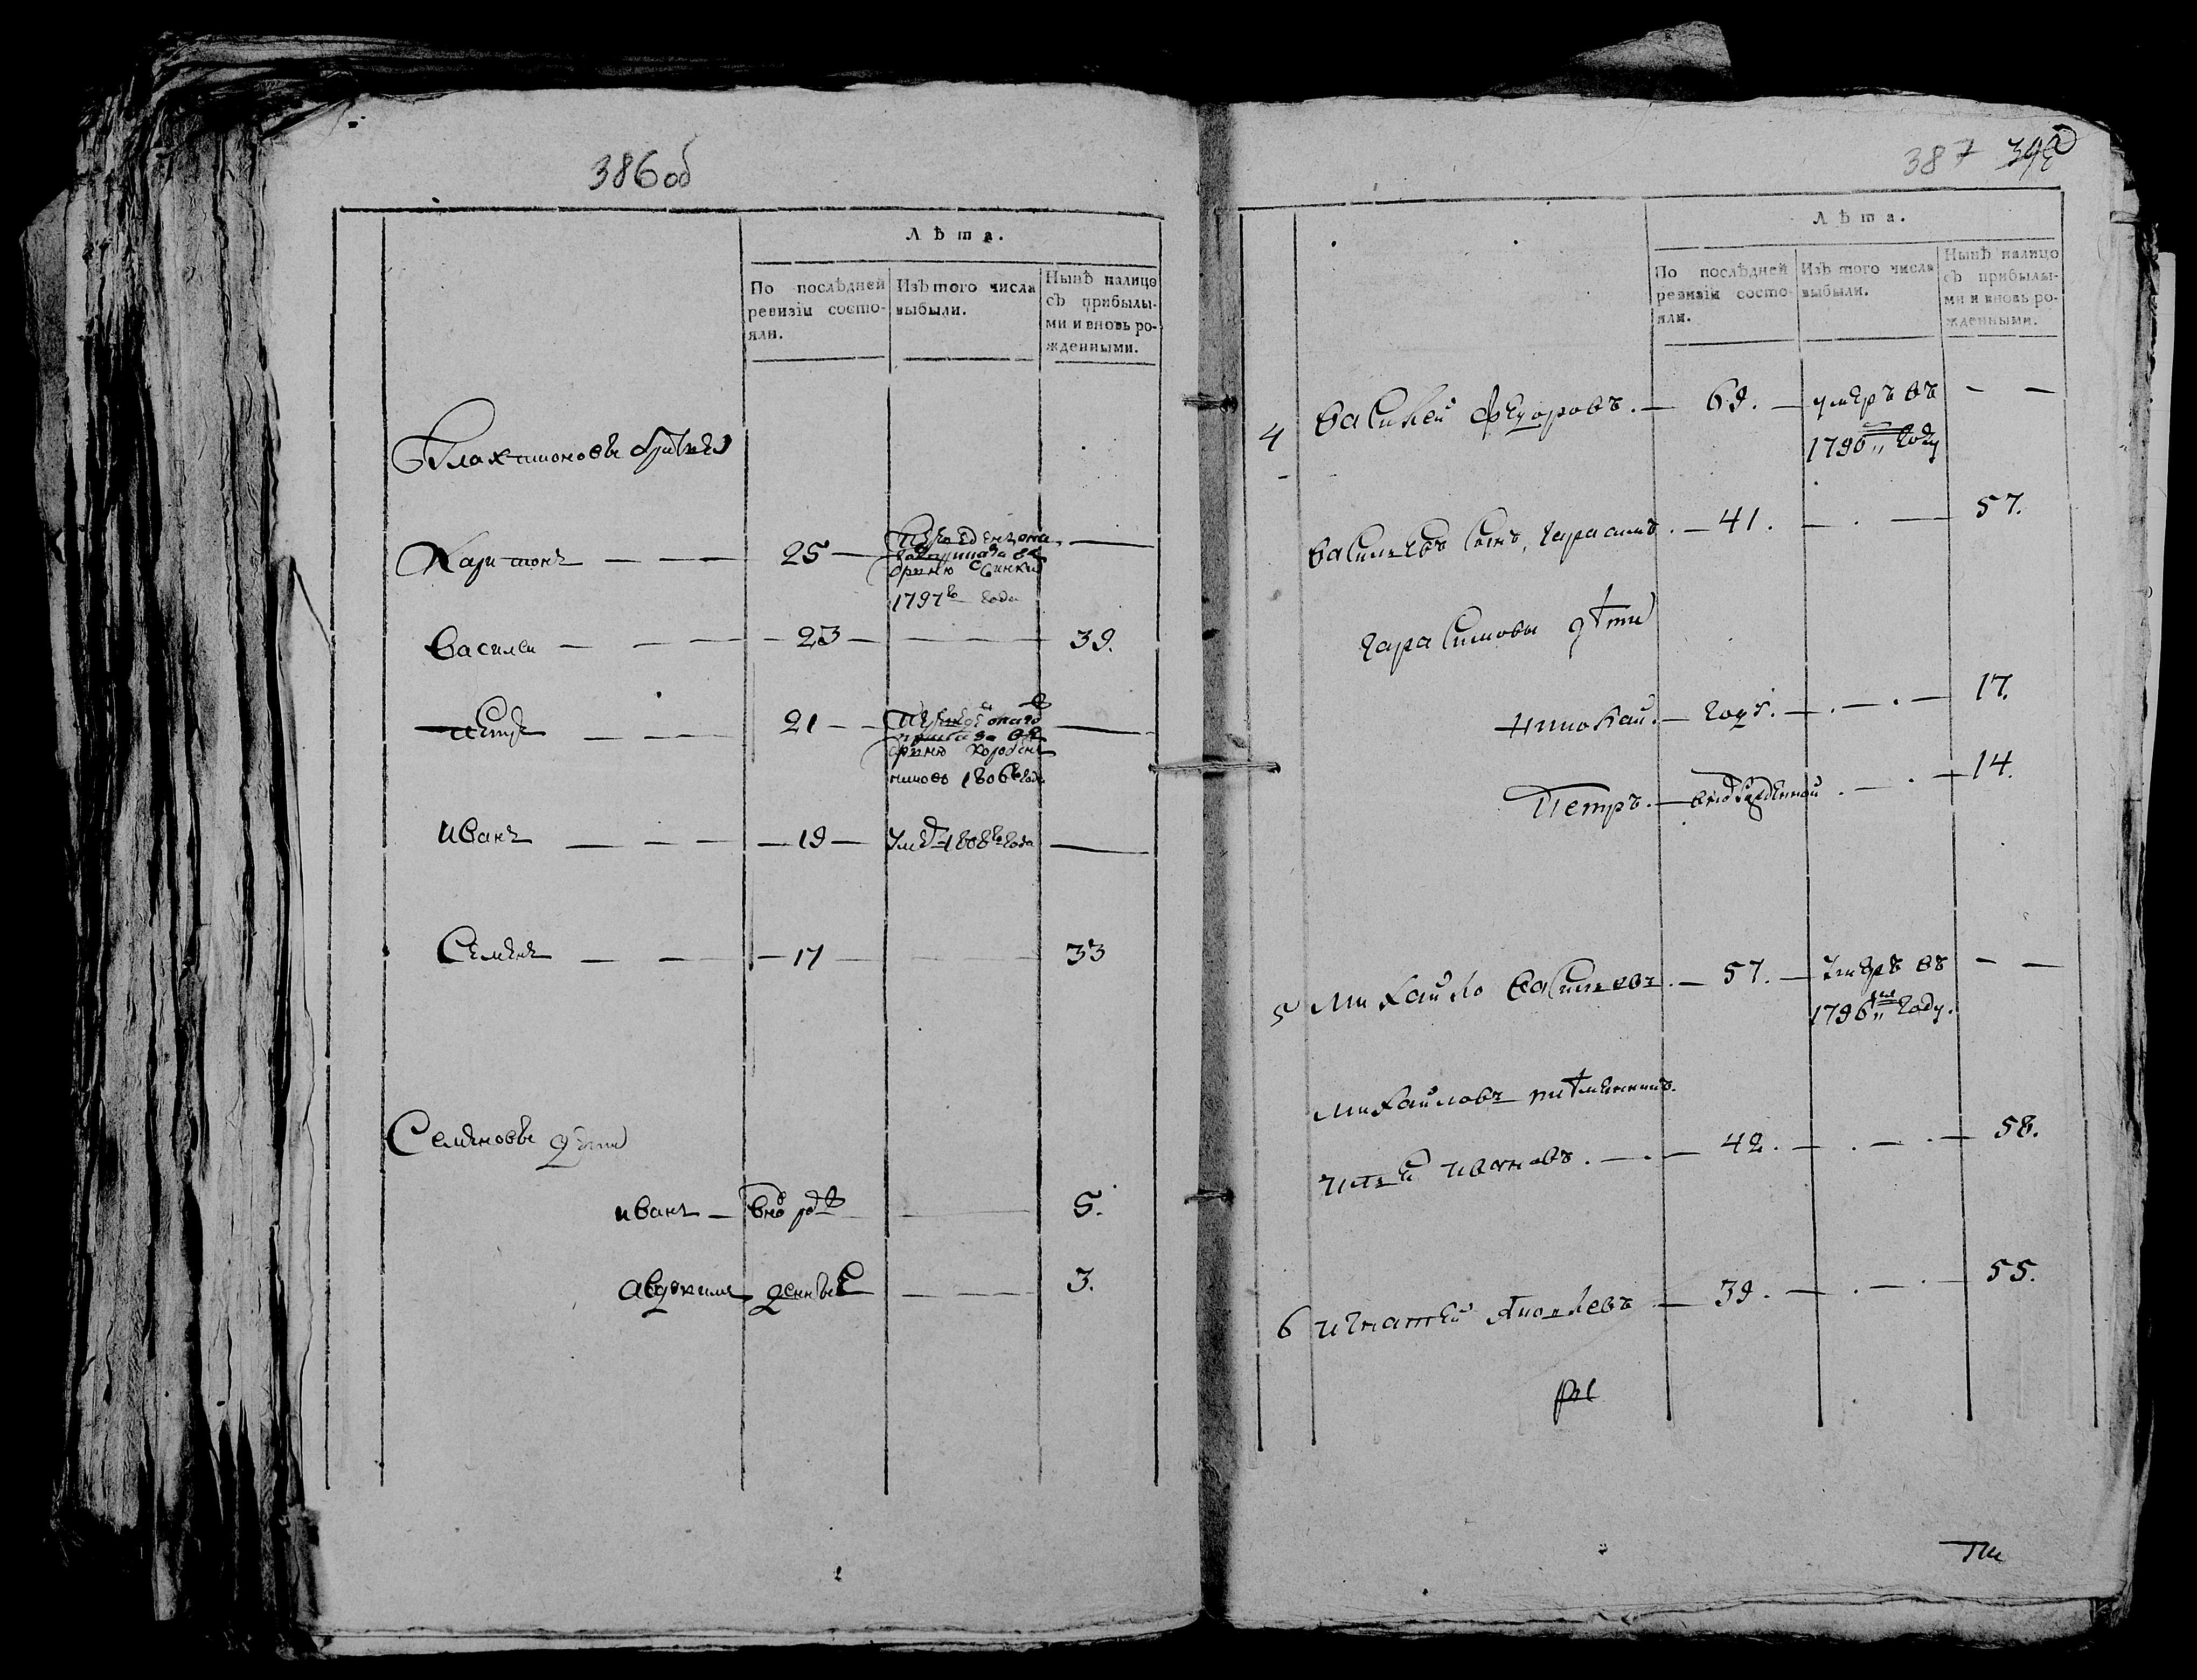 386 об
Лѣта.
По послѣдней ревизіи состояли.
Изъ того числа выбыли.
Нынѣ налицо съ прибылыми и вновь рожденными.
Харитонъ — — — 25 —
1797го года
Василеи — — — 23 — — — 39.
Петръ — — 21 —
1806го года
Иванъ — — — 19 — 1808го года —
Семенъ — — — 17 — — — 33
Семеновы дѣти
Иванъ — 5.
Авдокимъ — — — 3.
387
Лѣта.
По послѣдней ревизіи состояли.
Изъ того числа выбыли.
Нынѣ налицо съ прибылыми и вновь рожденными.
4 Василей Федоровъ. — 69. — умеръ въ — —
1796 году
Васильевъ сынъ, Гарасимъ. — 41. — . — 57.
Гарасимовы дѣти
Николай. — годъ. — . — . — 17.
Петръ. — . — . — 14.
5 Михайло Васильевъ. — 57. — умеръ въ — —
1796 году.
Михайловъ племянникъ.
Ивановъ. — . — 42. — . — . — 58.
6 Игнатей Яковлевъ — 39. — . — . — 55.